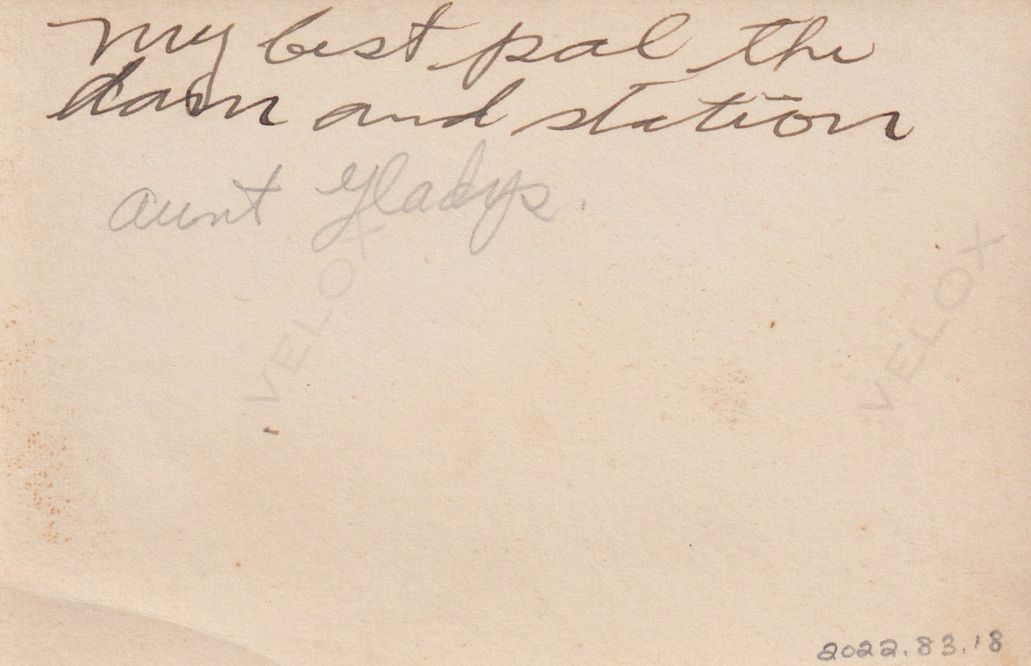 my best pal the
dam and station
aunt Gladys.
VELOX
VELOX
2022.83.18